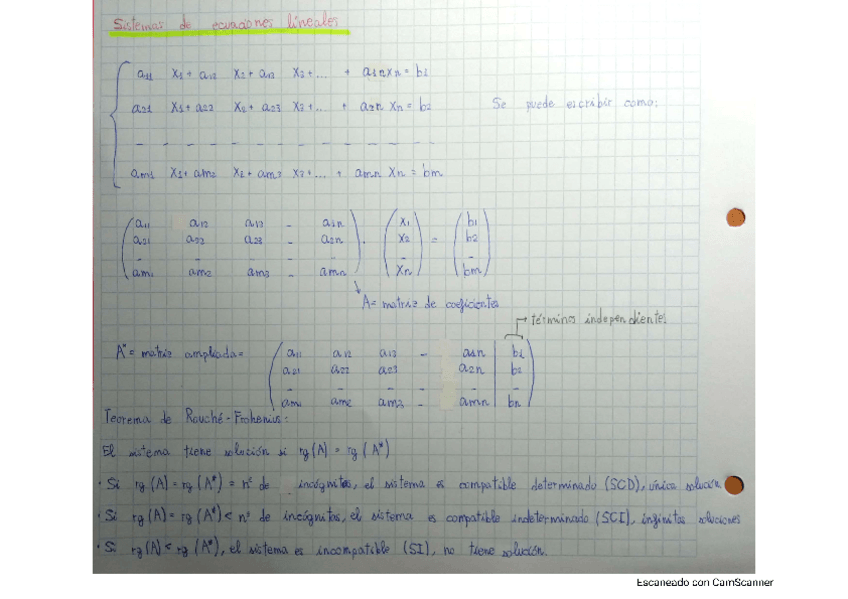 Sistemas de ecuaciones lineales
a11 x1 + a12 x2 + a13 x3 + ... + a1n xn = b1
a21 x1 + a22 x2 + a23 x3 + ... + a2n xn = b2 Se puede escribir como:
- - - - - - - - - - - - -
am1 x1 + am2 x2 + am3 x3 + ... + amn xn = bm
a11 a12 a13 - a1n x1 b1
a21 a22 a23 - a2n · x2 = b2
- - - - - - -
am1 am2 am3 - amn xn bm
A = matriz de coeficientes
términos independientes
A* = matriz ampliada = a11 a12 a13 - a1n b1
a21 a22 a23 a2n b2
- - - - - -
am1 am2 am3 - amn bn
Teorema de Rouché-Frohenius:
El sistema tiene solución si rg(A) = rg(A*)
· Si rg(A) = rg(A*) = nº de incógnitas, el sistema es compatible determinado (SCD), única solución.
· Si rg(A) = rg(A*) < nº de incógnitas, el sistema es compatible indeterminado (SCI), infinitas soluciones
· Si rg(A) < rg(A*), el sistema es incompatible (SI), no tiene solución.
Escaneado con CamScanner